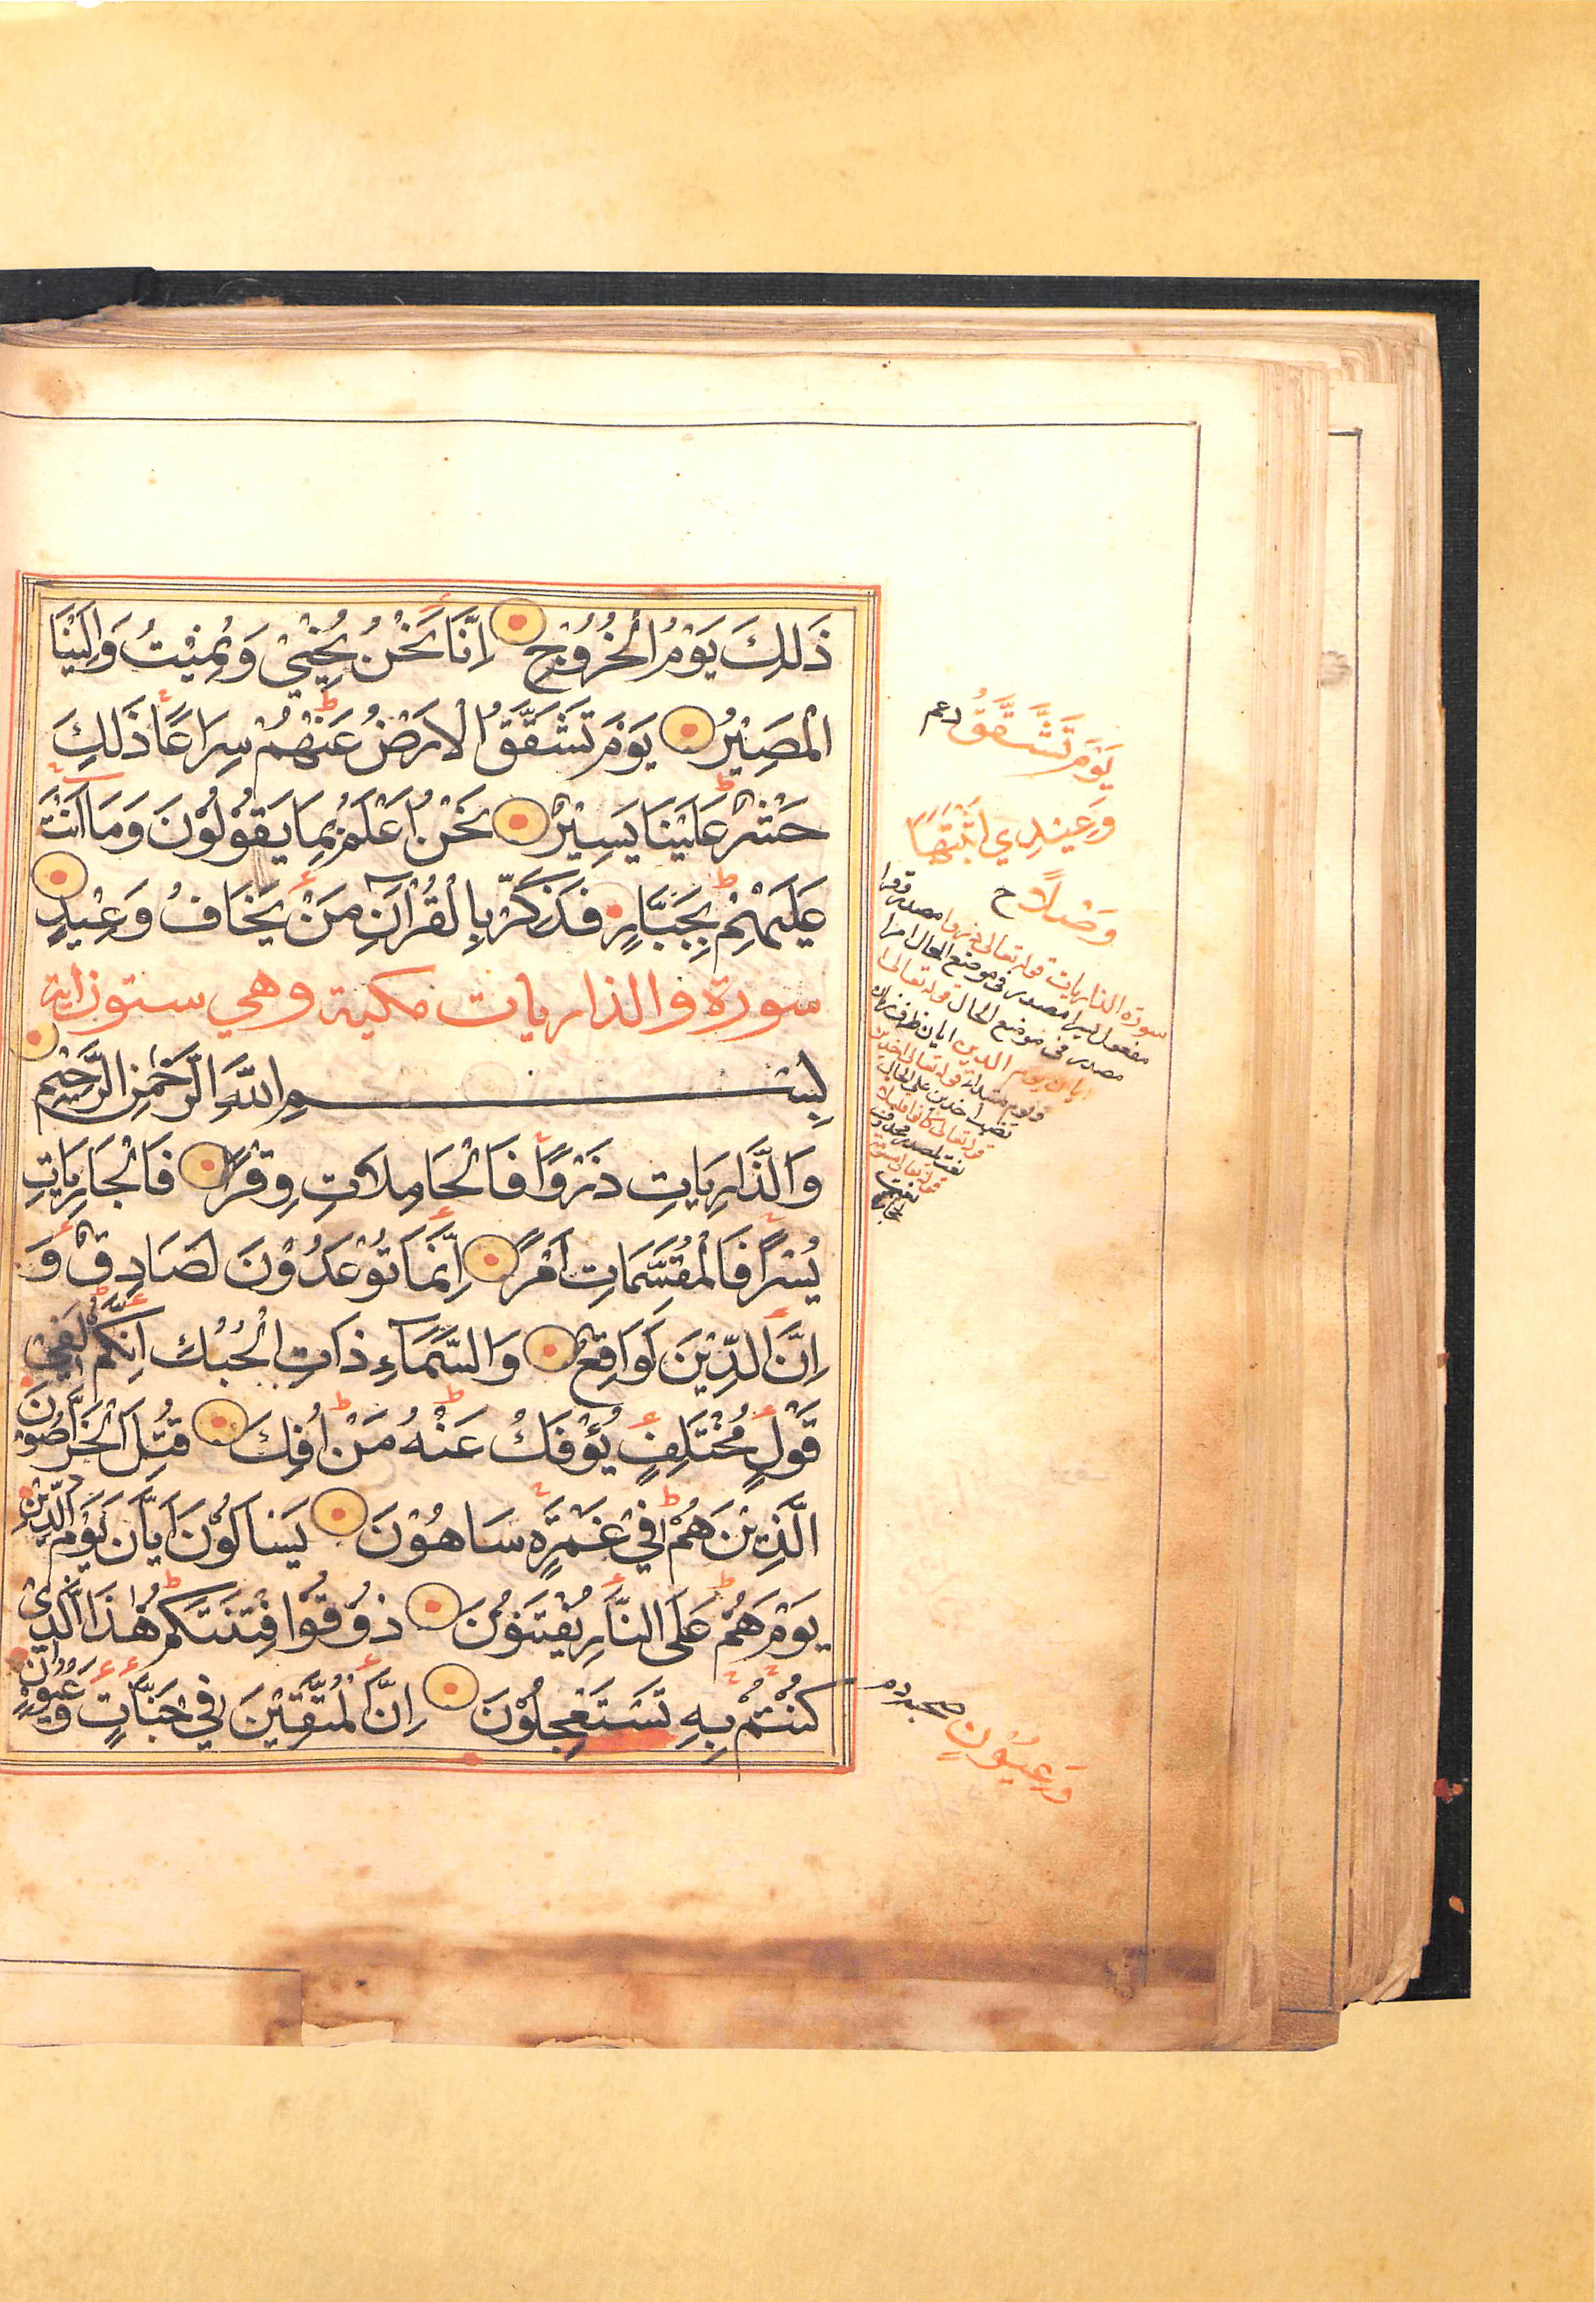 ذَلِكَ يَوْمُ الْخُرُوْجِ اِنَّا نَحْنُ نُحْيِيْ وَنُمِيْتُ وَاِلَيْنَا
الْمَصِيْرُ يَوْمَ تَشَقَّقُ الْاَرْضُ عَنْهُمْ سِرَاعًا ذَلِكَ
حَشْرٌ عَلَيْنَا يَسِيْرٌ نَحْنُ اَعْلَمُ بِمَا يَقُوْلُوْنَ وَمَا اَنْتَ
عَلَيْهِمْ بِجَبَّارٍ فَذَكِّرْ بِالْقُرْآنِ مَنْ يَخَافُ وَعِيْدِ
سورة والذاريات مكية وهي ستون اية
بِسْمِ اللَّهِ الرَّحْمٰنِ الرَّحِيْمِ
وَالذَّارِيَاتِ ذَرْوًا فَالْحَامِلَاتِ وِقْرًا فَالْجَارِيَاتِ
يُسْرًا فَالْمُقَسِّمَاتِ اَمْرًا اِنَّمَا تُوْعَدُوْنَ لَصَادِقٌ وَ
اِنَّ الدِّيْنَ لَوَاقِعٌ وَالسَّمَآءِ ذَاتِ الْحُبُكِ اِنَّكُمْ لَفِيْ
قَوْلٍ مُخْتَلِفٍ يُؤْفَكُ عَنْهُ مَنْ اُفِكَ قُتِلَ الْخَرَّاصُوْنَ
الَّذِيْنَ هُمْ فِيْ غَمْرَةٍ سَاهُوْنَ يَسْاَلُوْنَ اَيَّانَ يَوْمُ الدِّيْنِ
يَوْمَ هُمْ عَلَى النَّارِ يُفْتَنُوْنَ ذُوْقُوْا فِتْنَتَكُمْ هٰذَا الَّذِيْ
كُنْتُمْ بِهِ تَسْتَعْجِلُوْنَ اِنَّ الْمُتَّقِيْنَ فِيْ جَنَّاتٍ وَعُيُوْنٍ
يَوْمَ تَشَّقَّقُ
وَعِيْدِي اثْبَتَهَا
وَصْلًا ح
سورة الذاريات قوله تعالى ذروا مصدر
مفعول يسرا مصدر في موضع الحال
مصدر في موضع الحال قوله تعالى
وَعِيُوْنٍ